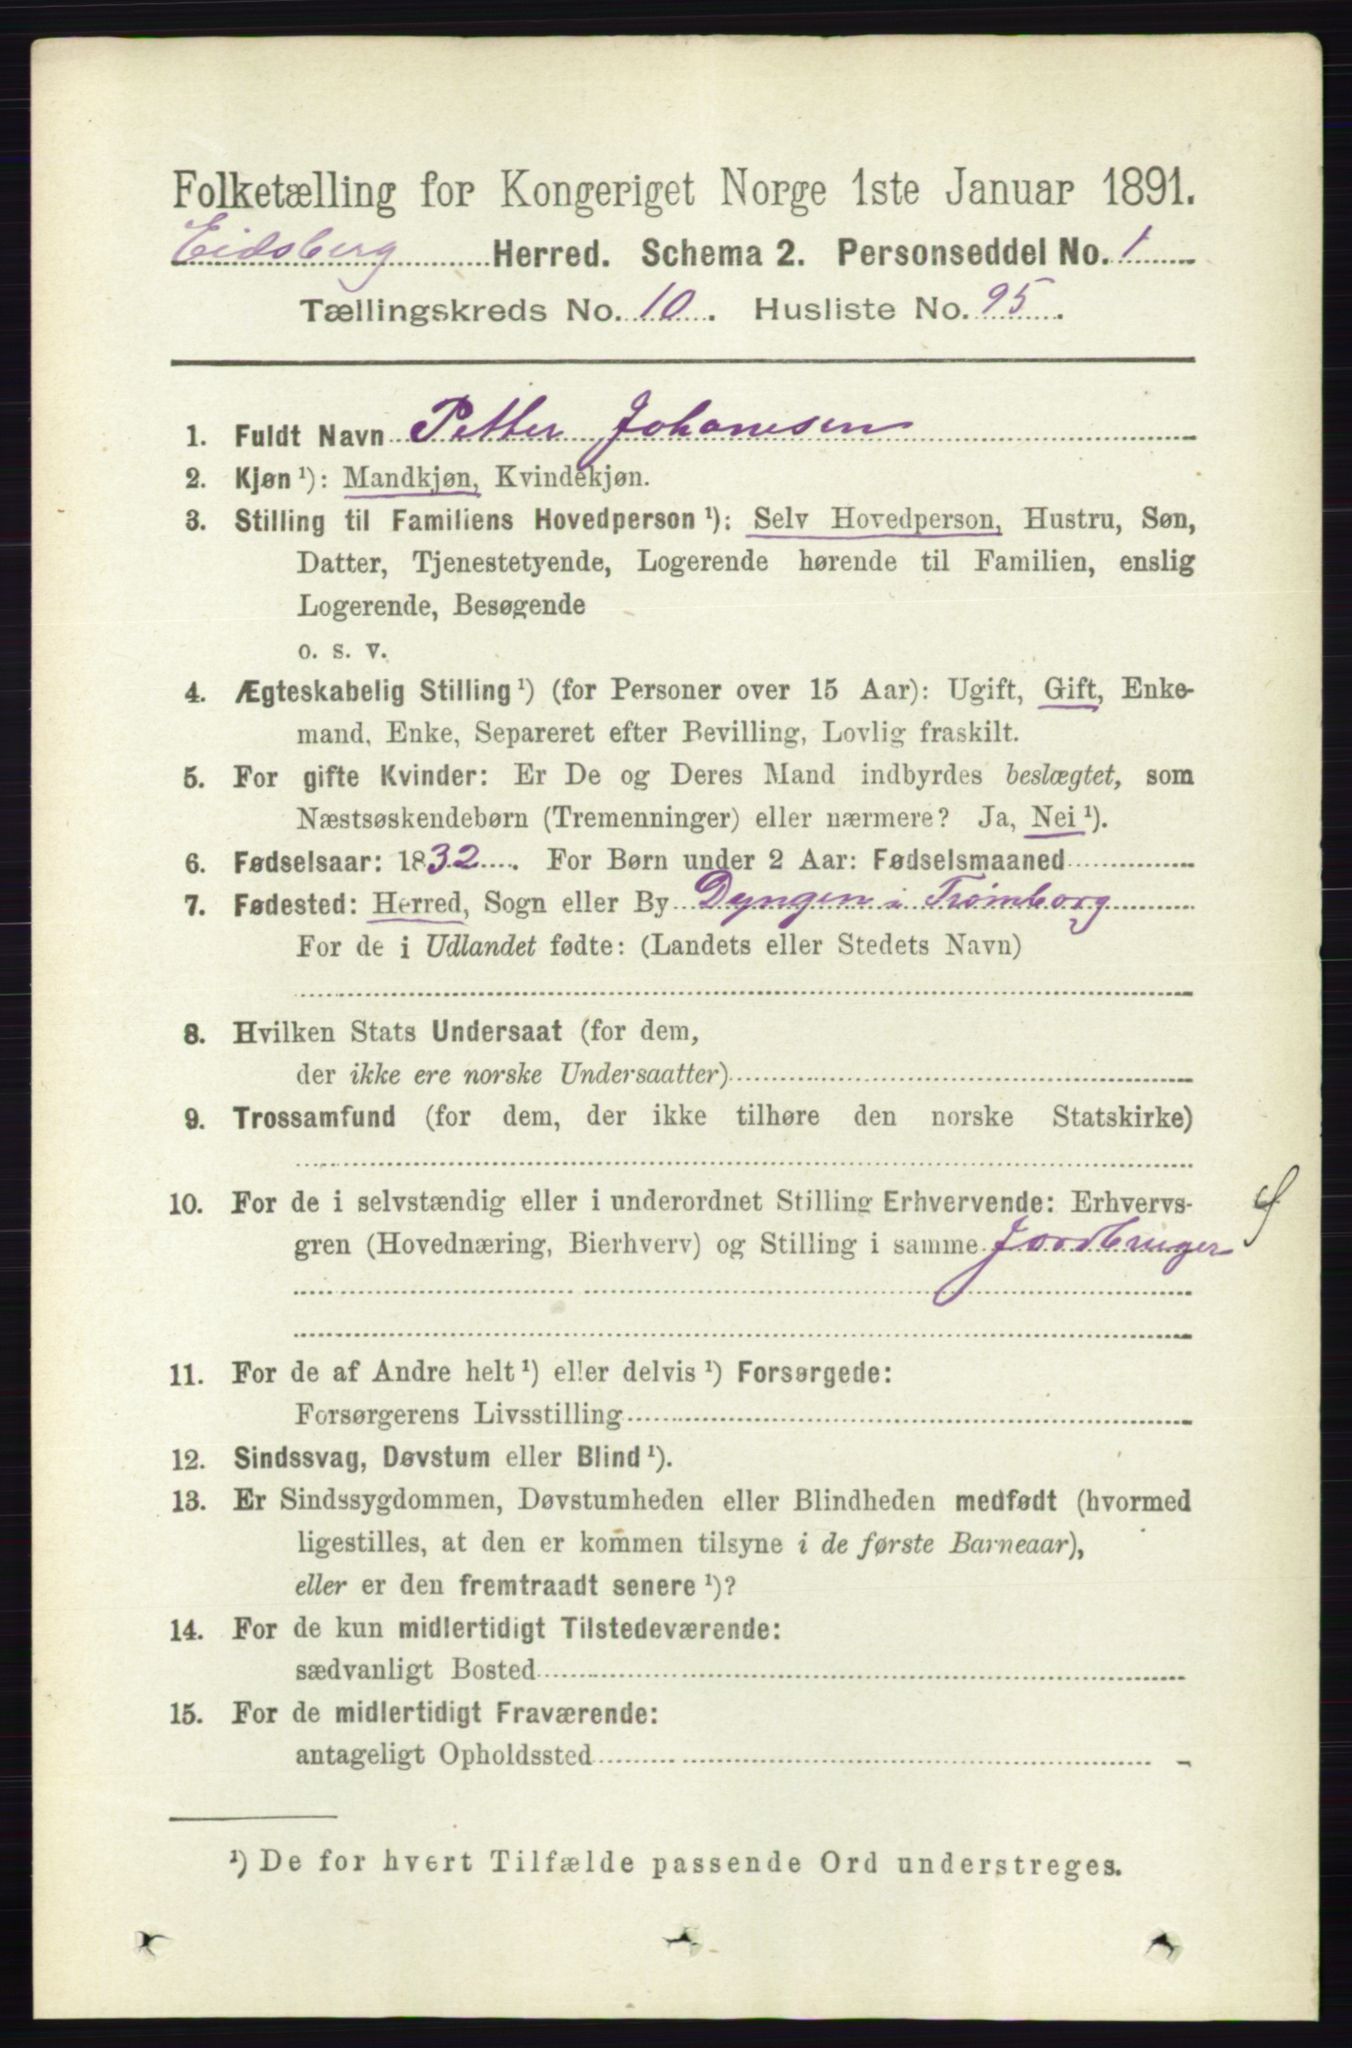 Folketælling for Kongeriget Norge 1ste Januar 1891.
Eidsberg Herred. Schema 2. Personseddel No. 1
Tællingskreds No. 10. Husliste No. 95.
1. Fuldt Navn Petter Johannesen
2. Kjøn ¹): Mandkjøn, Kvindekjøn.
3. Stilling til Familiens Hovedperson ¹): Selv Hovedperson, Hustru, Søn,
Datter, Tjenestetyende, Logerende hørende til Familien, enslig
Logerende, Besøgende
o. s. v.
4. Ægteskabelig Stilling ¹) (for Personer over 15 Aar): Ugift, Gift, Enke-
mand, Enke, Separeret efter Bevilling, Lovlig fraskilt.
5. For gifte Kvinder: Er De og Deres Mand indbyrdes beslægtet, som
Næstsøskendebørn (Tremenninger) eller nærmere? Ja, Nei ¹).
6. Fødselsaar: 1832. For Børn under 2 Aar: Fødselsmaaned
7. Fødested: Herred, Sogn eller By Dyngen i Trømborg
For de i Udlandet fødte: (Landets eller Stedets Navn)
8. Hvilken Stats Undersaat (for dem,
der ikke ere norske Undersaatter)
9. Trossamfund (for dem, der ikke tilhøre den norske Statskirke)
10. For de i selvstændig eller i underordnet Stilling Erhvervende: Erhvervs-
gren (Hovednæring, Bierhverv) og Stilling i samme Jordbruger
11. For de af Andre helt ¹) eller delvis ¹) Forsørgede:
Forsørgerens Livsstilling
12. Sindssvag, Døvstum eller Blind ¹).
13. Er Sindssygdommen, Døvstumheden eller Blindheden medfødt (hvormed
ligestilles, at den er kommen tilsyne i de første Barneaar),
eller er den fremtraadt senere ¹)?
14. For de kun midlertidigt Tilstedeværende:
sædvanligt Bosted
15. For de midlertidigt Fraværende:
antageligt Opholdssted
¹) De for hvert Tilfælde passende Ord understreges.